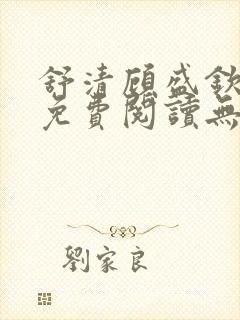 舒清顧盛欽
免費閱讀無
劉家良